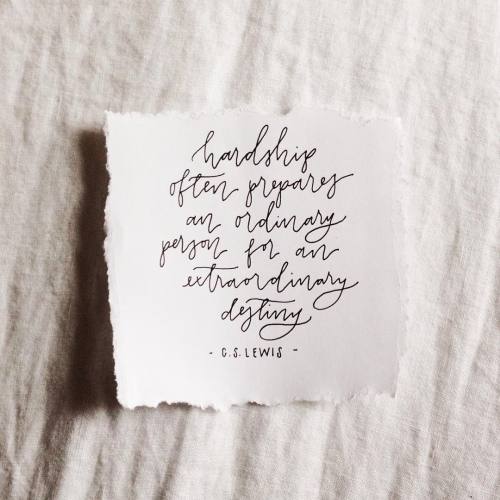 hardship
often prepares
an ordinary
person for an
extraordinary
destiny
- C.S. LEWIS -